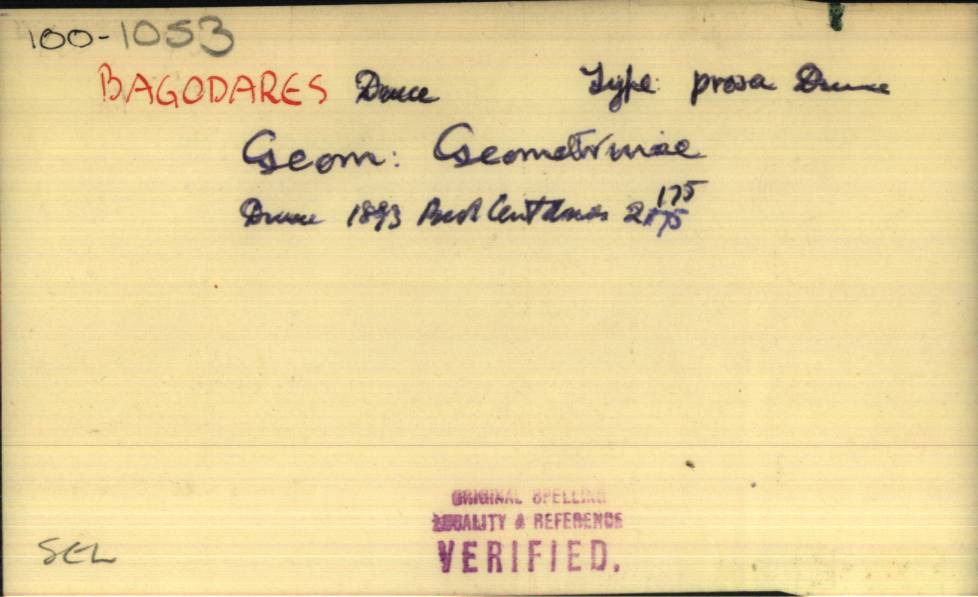 100-1053
BAGODARES Druce Type: prosa Druce
Geom: Geometrinae
Druce 1893 Biol Cent Amer 2
175
SEL
ORIGINAL SPELLING
LEGALITY & REFERENCE
VERIFIED.